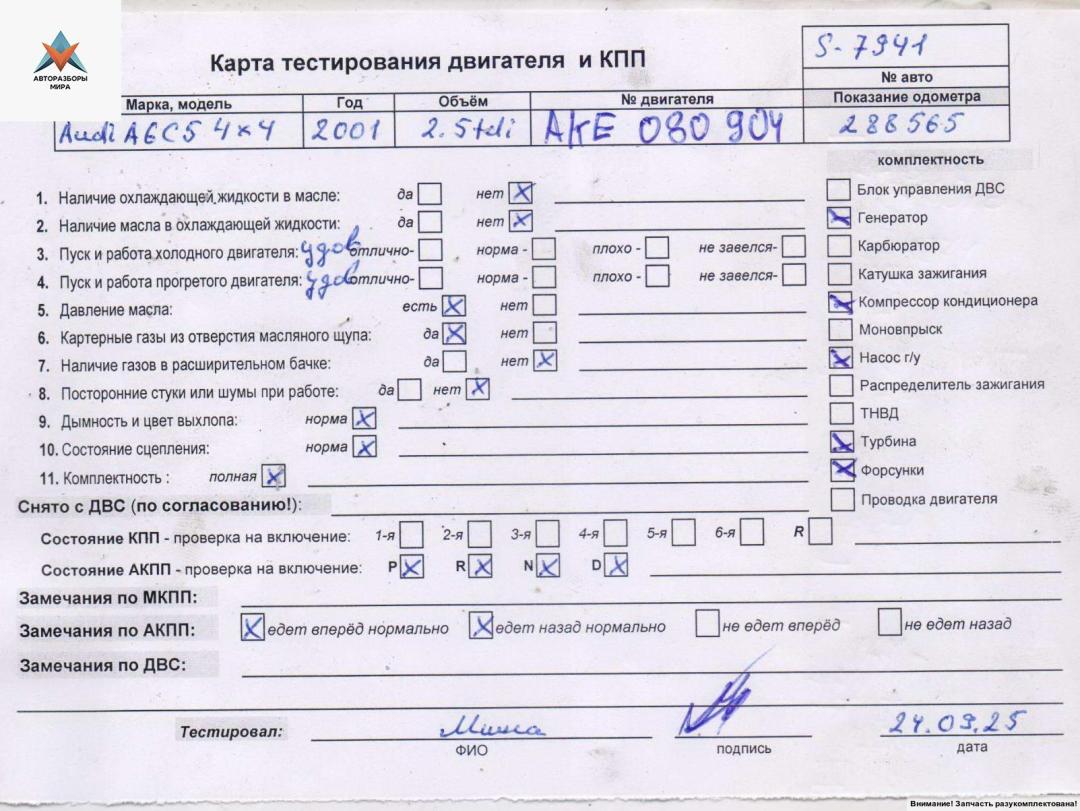 АВТОРАЗБОРЫ
МИРА
Карта тестирования двигателя и КПП
S-7941
№ авто
Марка, модель Год Объём № двигателя Показание одометра
Audi A6C5 4x4 2001 2.5tdi AKE 080 904 288565
комплектность
1. Наличие охлаждающей жидкости в масле: да нет Х
Блок управления ДВС
2. Наличие масла в охлаждающей жидкости: да нет Х
Х Генератор
3. Пуск и работа холодного двигателя: удов отлично- норма - плохо - не завелся-
Карбюратор
4. Пуск и работа прогретого двигателя: удов отлично- норма - плохо - не завелся-
Катушка зажигания
5. Давление масла: есть Х нет
Х Компрессор кондиционера
6. Картерные газы из отверстия масляного щупа: да Х нет
Моновпрыск
7. Наличие газов в расширительном бачке: да нет Х
Х Насос г/у
8. Посторонние стуки или шумы при работе: да нет Х
Распределитель зажигания
9. Дымность и цвет выхлопа: норма Х
ТНВД
10. Состояние сцепления: норма Х
Х Турбина
11. Комплектность : полная Х
Х Форсунки
Проводка двигателя
Снято с ДВС (по согласованию!):
Состояние КПП - проверка на включение: 1-я 2-я 3-я 4-я 5-я 6-я R
Состояние АКПП - проверка на включение: P Х R Х N Х D Х
Замечания по МКПП:
Замечания по АКПП: Х едет вперёд нормально Х едет назад нормально не едет вперёд не едет назад
Замечания по ДВС:
Тестировал: 24.09.25
ФИО подпись дата
Внимание! Запчасть разукомплектована!